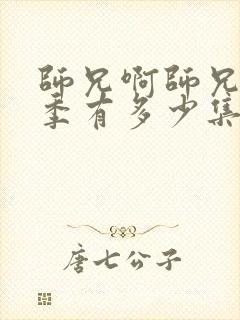 師兄啊師兄
季有多少集
唐七公子